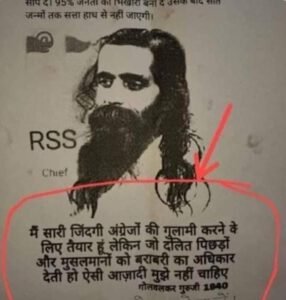 सौंप दो। 95% जनता को भिखारी बना दे उसके बाद सात
जन्मों तक सत्ता हाथ से नहीं जाएगी।
RSS
Chief
मैं सारी जिंदगी अंग्रेजों की गुलामी करने के
लिए तैयार हूं लेकिन जो दलित पिछड़ों
और मुसलमानों को बराबरी का अधिकार
देती हो ऐसी आज़ादी मुझे नहीं चाहिए
गोलवलकर गुरुजी 1940